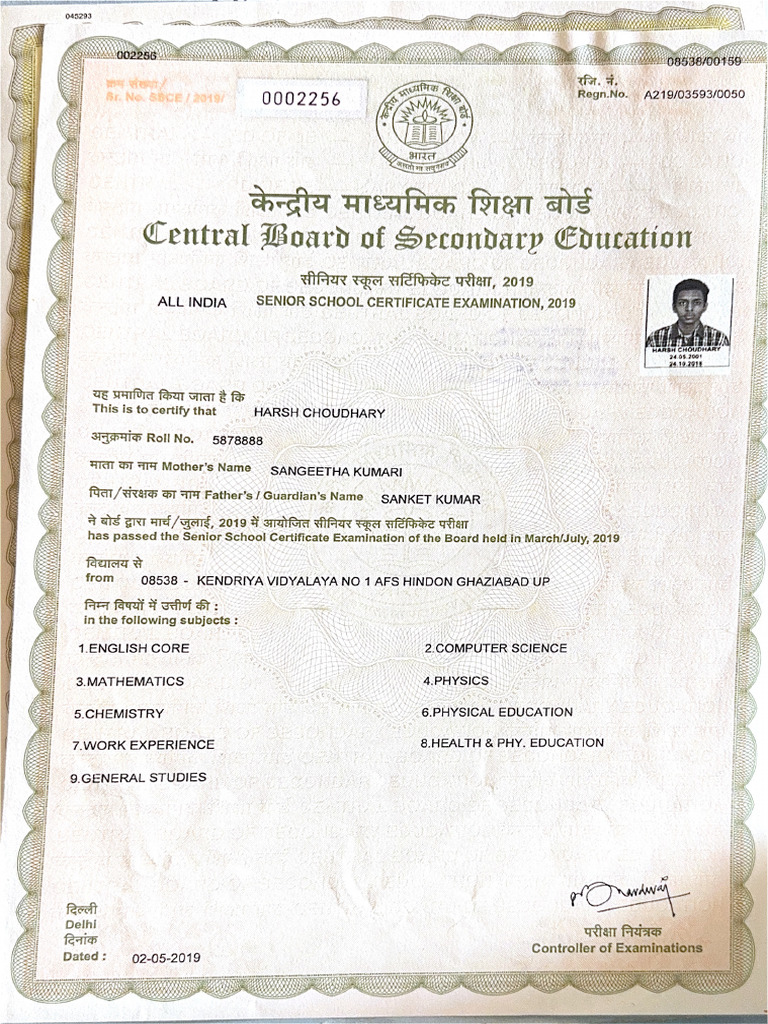 045293
002256
08538/00159
क्रम संख्या /
Sr. No. SSCE / 2019/
0002256
रजि. नं.
Regn.No. A219/03593/0050
केन्द्रीय माध्यमिक शिक्षा बोर्ड
भारत
असतो मा सद्गमय
केन्द्रीय माध्यमिक शिक्षा बोर्ड
Central Board of Secondary Education
सीनियर स्कूल सर्टिफिकेट परीक्षा, 2019
ALL INDIA SENIOR SCHOOL CERTIFICATE EXAMINATION, 2019
HARSH CHOUDHARY
24.05.2001
यह प्रमाणित किया जाता है कि
This is to certify that HARSH CHOUDHARY
अनुक्रमांक Roll No. 5878888
माता का नाम Mother's Name SANGEETHA KUMARI
पिता/संरक्षक का नाम Father's / Guardian's Name SANKET KUMAR
ने बोर्ड द्वारा मार्च/जुलाई, 2019 में आयोजित सीनियर स्कूल सर्टिफिकेट परीक्षा
has passed the Senior School Certificate Examination of the Board held in March/July, 2019
विद्यालय से
from 08538 - KENDRIYA VIDYALAYA NO 1 AFS HINDON GHAZIABAD UP
निम्न विषयों में उत्तीर्ण की :
in the following subjects :
1.ENGLISH CORE 2.COMPUTER SCIENCE
3.MATHEMATICS 4.PHYSICS
5.CHEMISTRY 6.PHYSICAL EDUCATION
7.WORK EXPERIENCE 8.HEALTH & PHY. EDUCATION
9.GENERAL STUDIES
दिल्ली
Delhi
दिनांक
Dated : 02-05-2019
परीक्षा नियंत्रक
Controller of Examinations